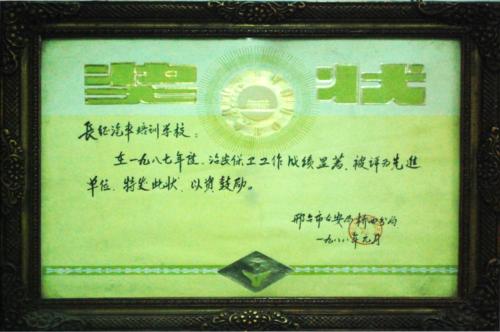 奖状
长征汽车培训学校：
在一九八七年度，治安保卫工作成绩显著，被评为先進
单位，特发此状，以资鼓励。
邢台市公安局桥西分局
一九八八年元月